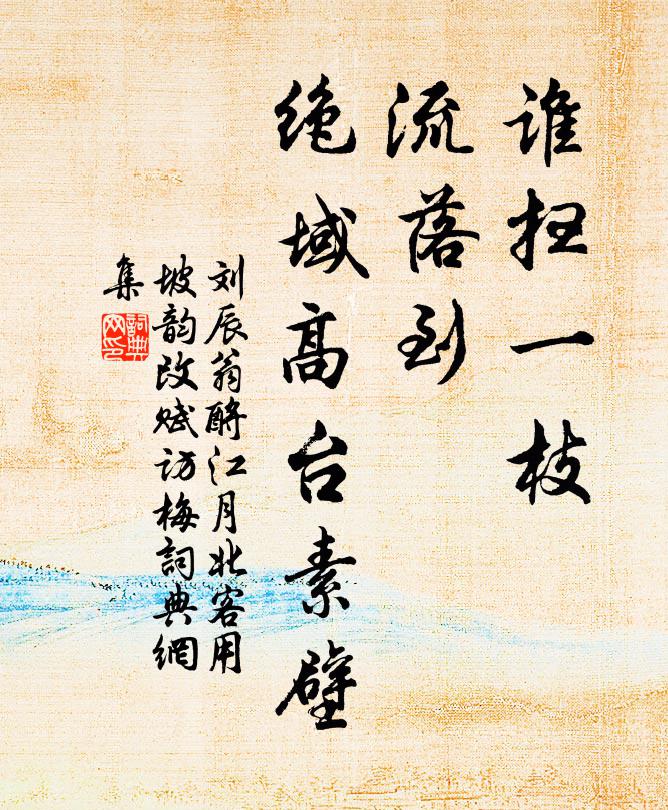 谁扫一枝
流落到
绝域高台素壁
刘辰翁酹江月北客用
坡韵改赋访梅詞典網
集
詞典
网印